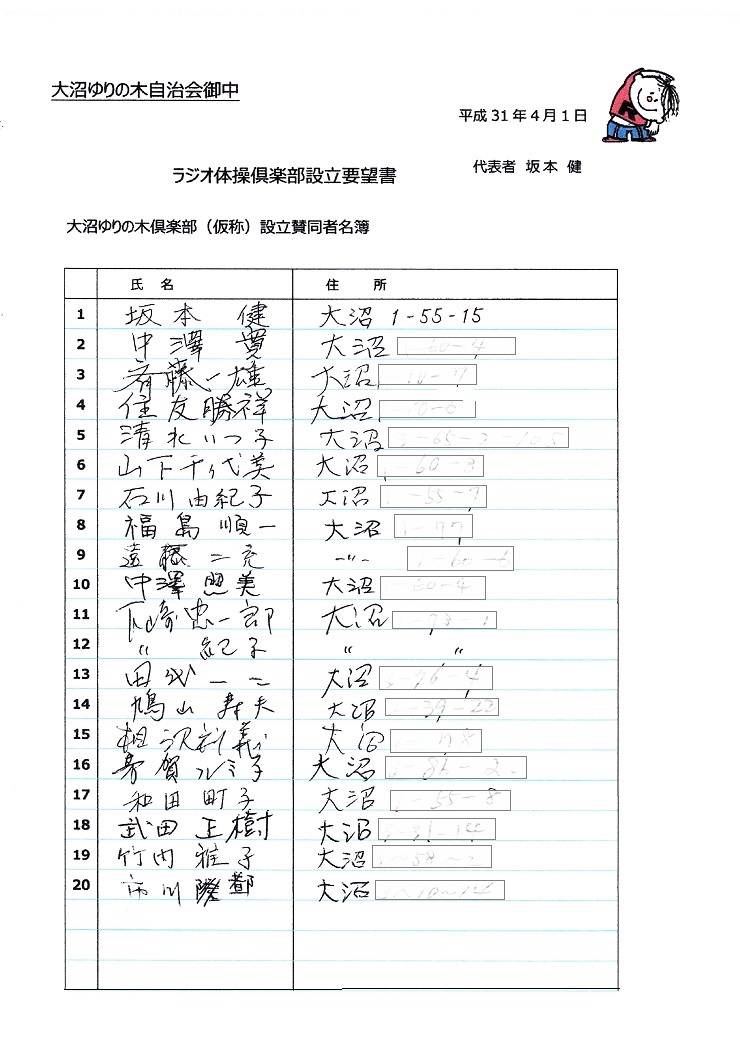 大沼ゆりの木自治会御中
平成31年4月1日
代表者 坂本 健
ラジオ体操倶楽部設立要望書
大沼ゆりの木倶楽部（仮称）設立賛同者名簿
氏 名 住 所
1 坂本 健 大沼 1-55-15
2 中澤 寛 大沼
3 斉藤一雄 大沼
4 住友勝祥 大沼
5 清水いつ子 大沼
6 山下千代美 大沼
7 石川由紀子 大沼
8 福島順一 大沼
9 遠藤二亮 〃
10 中澤照美 大沼
11 下崎忠一郎 大沼
12 〃 紀子 〃 〃
13 田代一二 大沼
14 鳩山寿夫 大沼
15 利義 大沼
16 賀ルミ子 大沼
17 和田町子 大沼
18 武田正樹 大沼
19 竹内雅子 大沼
20 市川 大沼